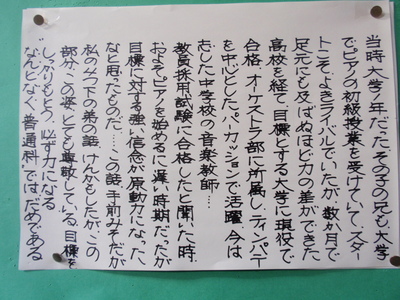 当時大学一年だったその子の兄も、大学
でピアノの初級授業を受けていて、スター
トこそよきライバルでいたが、数か月で
足元にも及ばぬほど力の差ができた
高校を経て、目標とする大学に現役で
合格。オーケストラ部に所属し、ティンパニー
を中心としたパーカッションで活躍。今は
志した中学校の音楽教師…。
教員採用試験に合格したと聞いた時、
およそピアノを始めるに遅い時期だったが
目標に対する強い信念が原動力になった
なと思ったものだ……この話、手前みそだが
私の4つ下の弟の話。けんかもしたが、この
部分、この姿、とても尊敬している。目標を
しっかりもとう。必ず力になる
"なんとなく、普通科"ではだめである